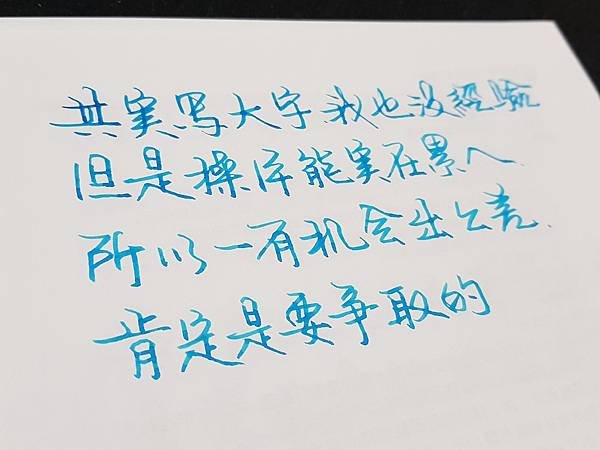 其实写大字我也没經验
但是操体能实在累人
所以一有机会出公差
肯定是要争取的